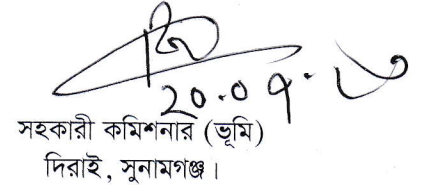 সহকারী কমিশনার (ভূমি)
দিরাই, সুনামগঞ্জ।